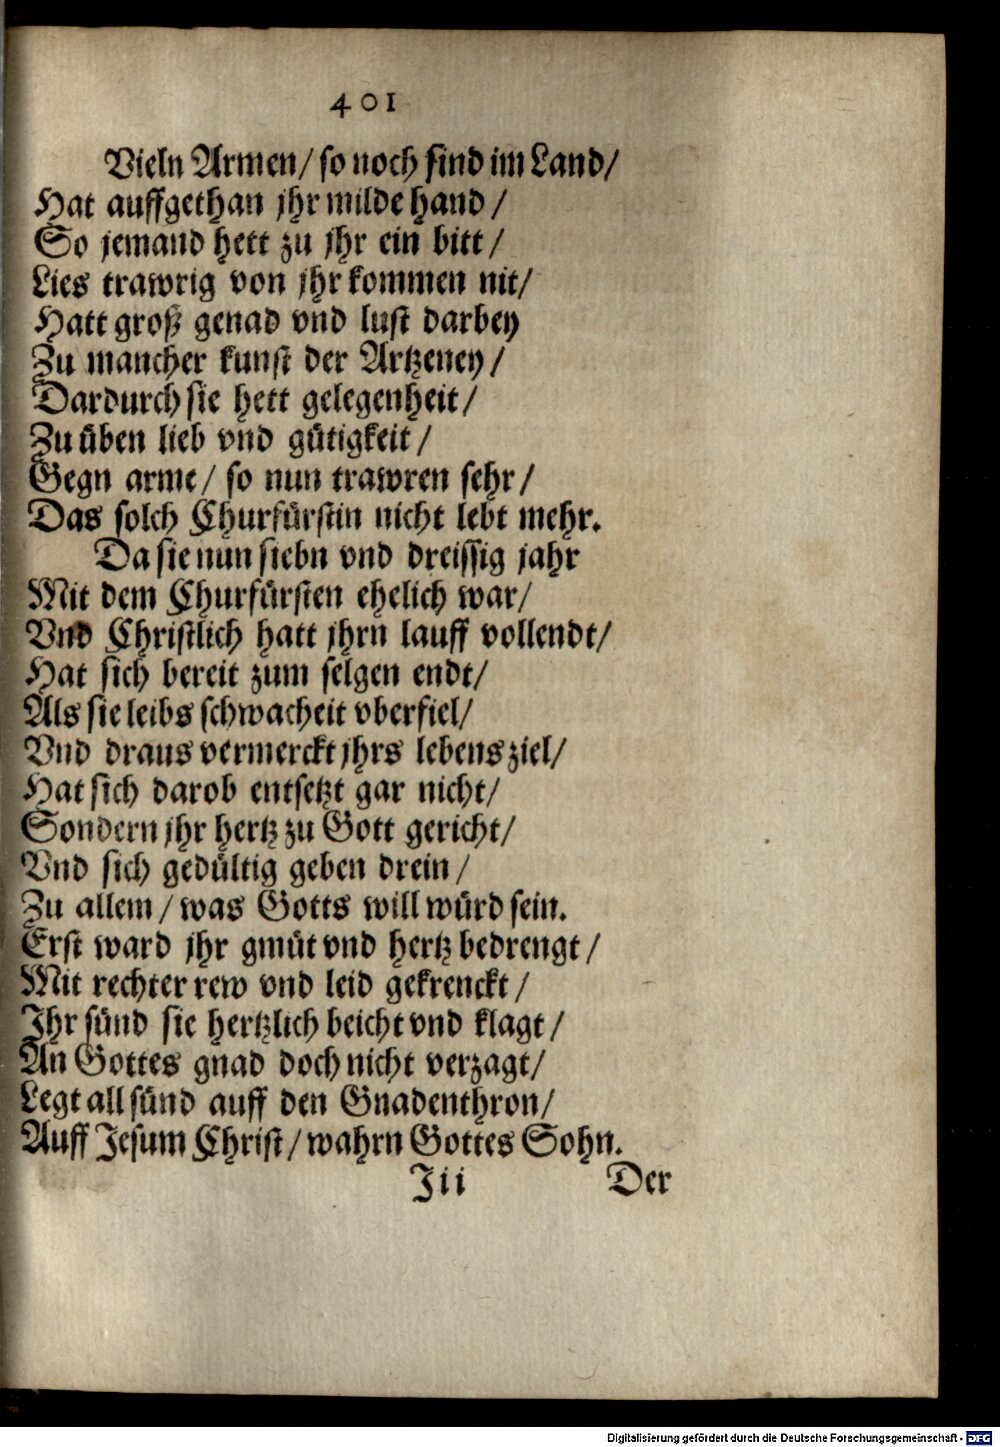 401
Vieln Armen/ so noch sind im Land/
Hat auffgethan jhr milde hand/
So jemand hett zu jhr ein bitt/
Lies trawrig von jhr kommen nit/
Hatt groß genad vnd lust darbey
Zu mancher kunst der Artzeney/
Dardurch sie hett gelegenheit/
Zu üben lieb vnd gütigkeit/
Gegn arme/ so nun trawren sehr/
Das solch Churfürstin nicht lebt mehr.
Da sie nun siebn vnd dreissig jahr
Mit dem Churfürsten ehelich war/
Vnd Christlich hatt jhrn lauff vollendt/
Hat sich bereit zum selgen endt/
Als sie leibs schwacheit vberfiel/
Vnd draus vermerckt jhrs lebens ziel/
Hat sich darob entsetzt gar nicht/
Sondern jhr hertz zu Gott gericht/
Vnd sich gedültig geben drein/
Zu allem/ was Gotts will würd sein.
Erst ward jhr gmüt vnd hertz bedrengt/
Mit rechter rew vnd leid gekrenckt/
Ihr sünd sie hertzlich beicht vnd klagt/
An Gottes gnad doch nicht verzagt/
Legt all sünd auff den Gnadenthron/
Auff Jesum Christ/ wahrn Gottes Sohn.
Iii Der
Digitalisierung gefördert durch die Deutsche Forschungsgemeinschaft - DFG